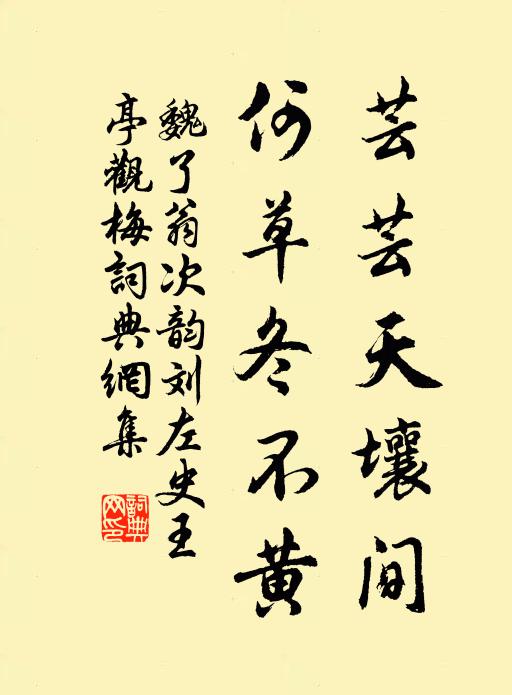 芸芸天壤间
何草冬不黄
魏了翁次韵刘左史王
亭觀梅詞典網集
詞典
网印